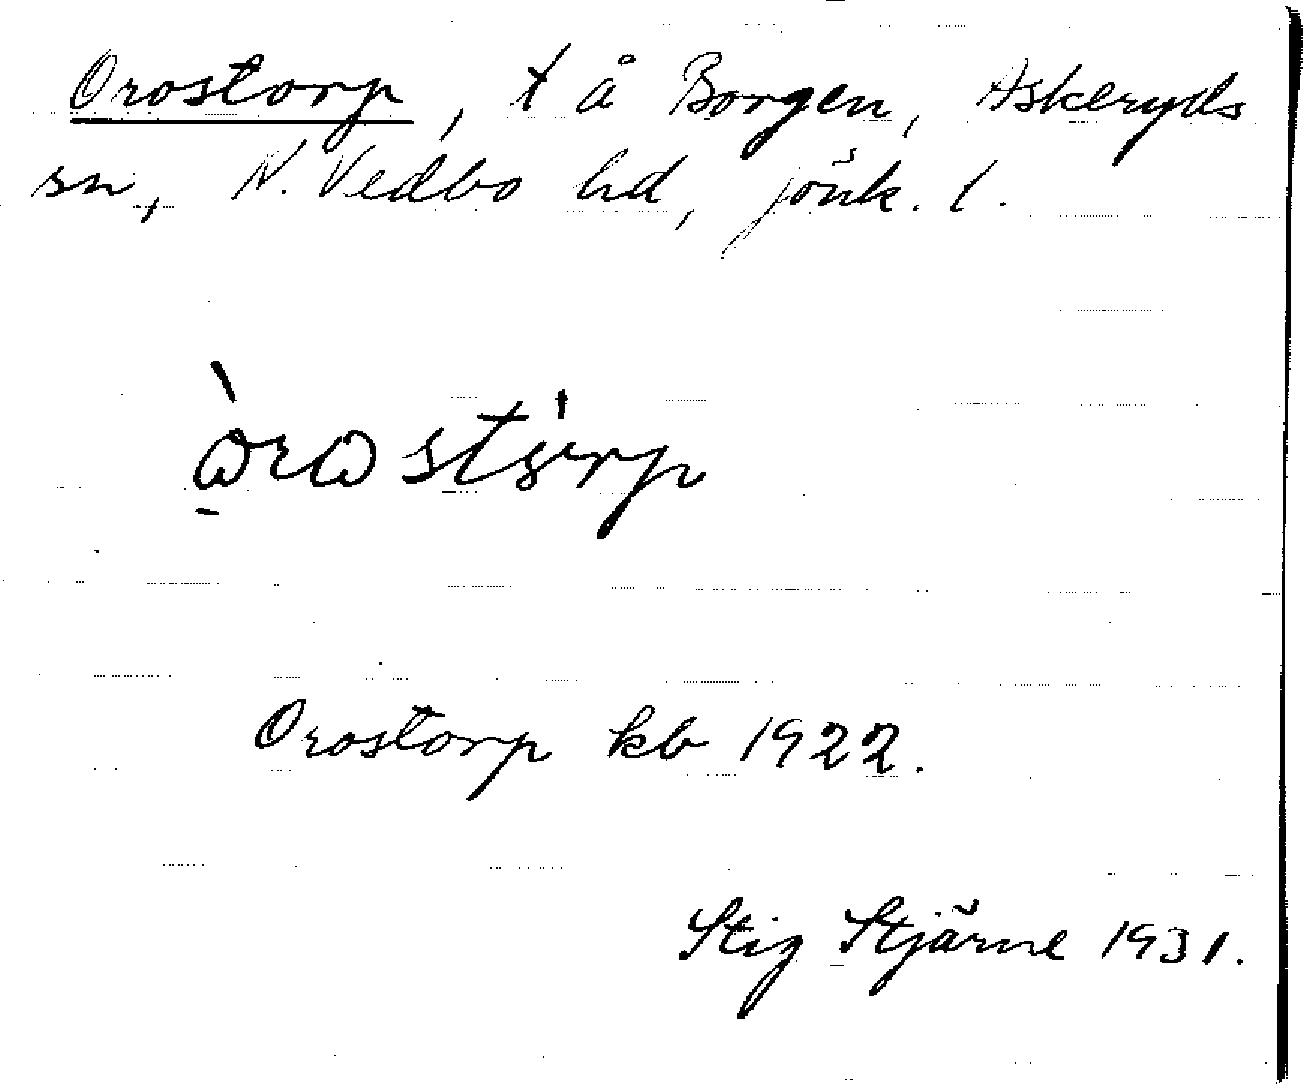 Orostorp, t å Borgen, Askeryds
sn, N. Vedbo hd, Jönk. l.
Orostorp kb 1922.
Stig Stjärne 1931.